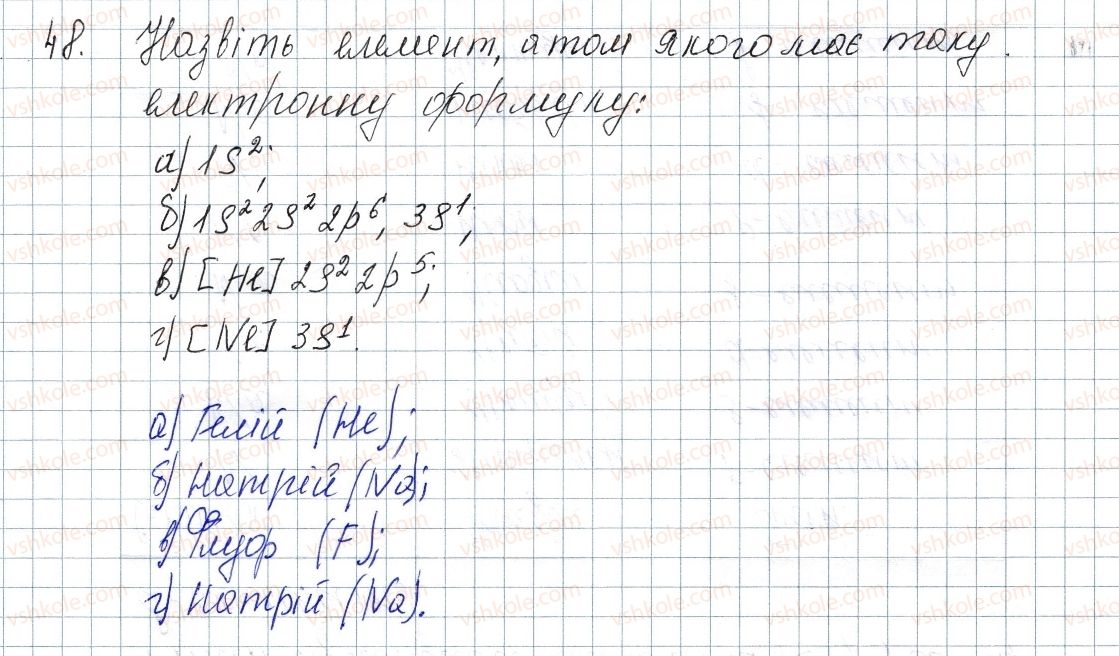 48. Назвіть елемент, атом якого має таку
електронну формулу:
а) 1s²;
б) 1s² 2s² 2p⁶, 3s¹;
в) [He] 2s² 2p⁵;
г) [Ne] 3s¹.
а) Гелій (He);
б) Натрій (Na);
в) Флуор (F);
г) Натрій (Na).
vshkole.com